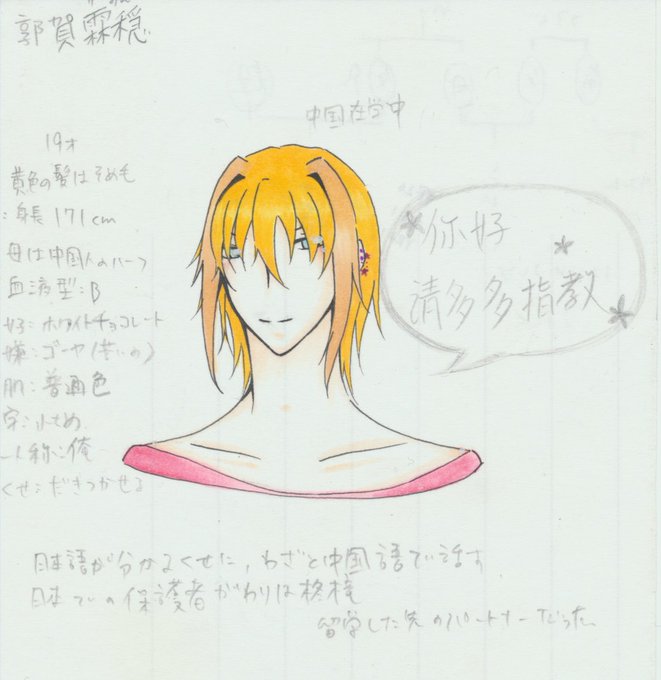 郭賀霖穏
中国在学中
19才
黄色の髪はそめ毛
身長 171cm
母は中国人のハーフ
血液型:B
好:ホワイトチョコレート
嫌:ゴーヤ(苦いの)
肌:普通色
字:小さめ
一人称:俺
くせ:だきつかせる
你好
请多多指教
日本語が分かるくせに、わざと中国語で話す
日本での保護者がわりは
留学した先のパートナーだった